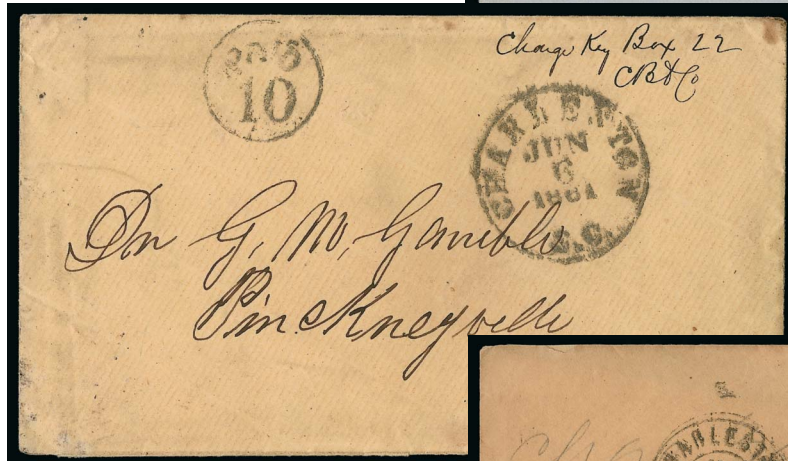 PAID
10
Charge Key Box 22
CB&Co
CHARLESTON
JUN
6
1861
S.C.
Dr G. M. Gamble
Pinckneyville